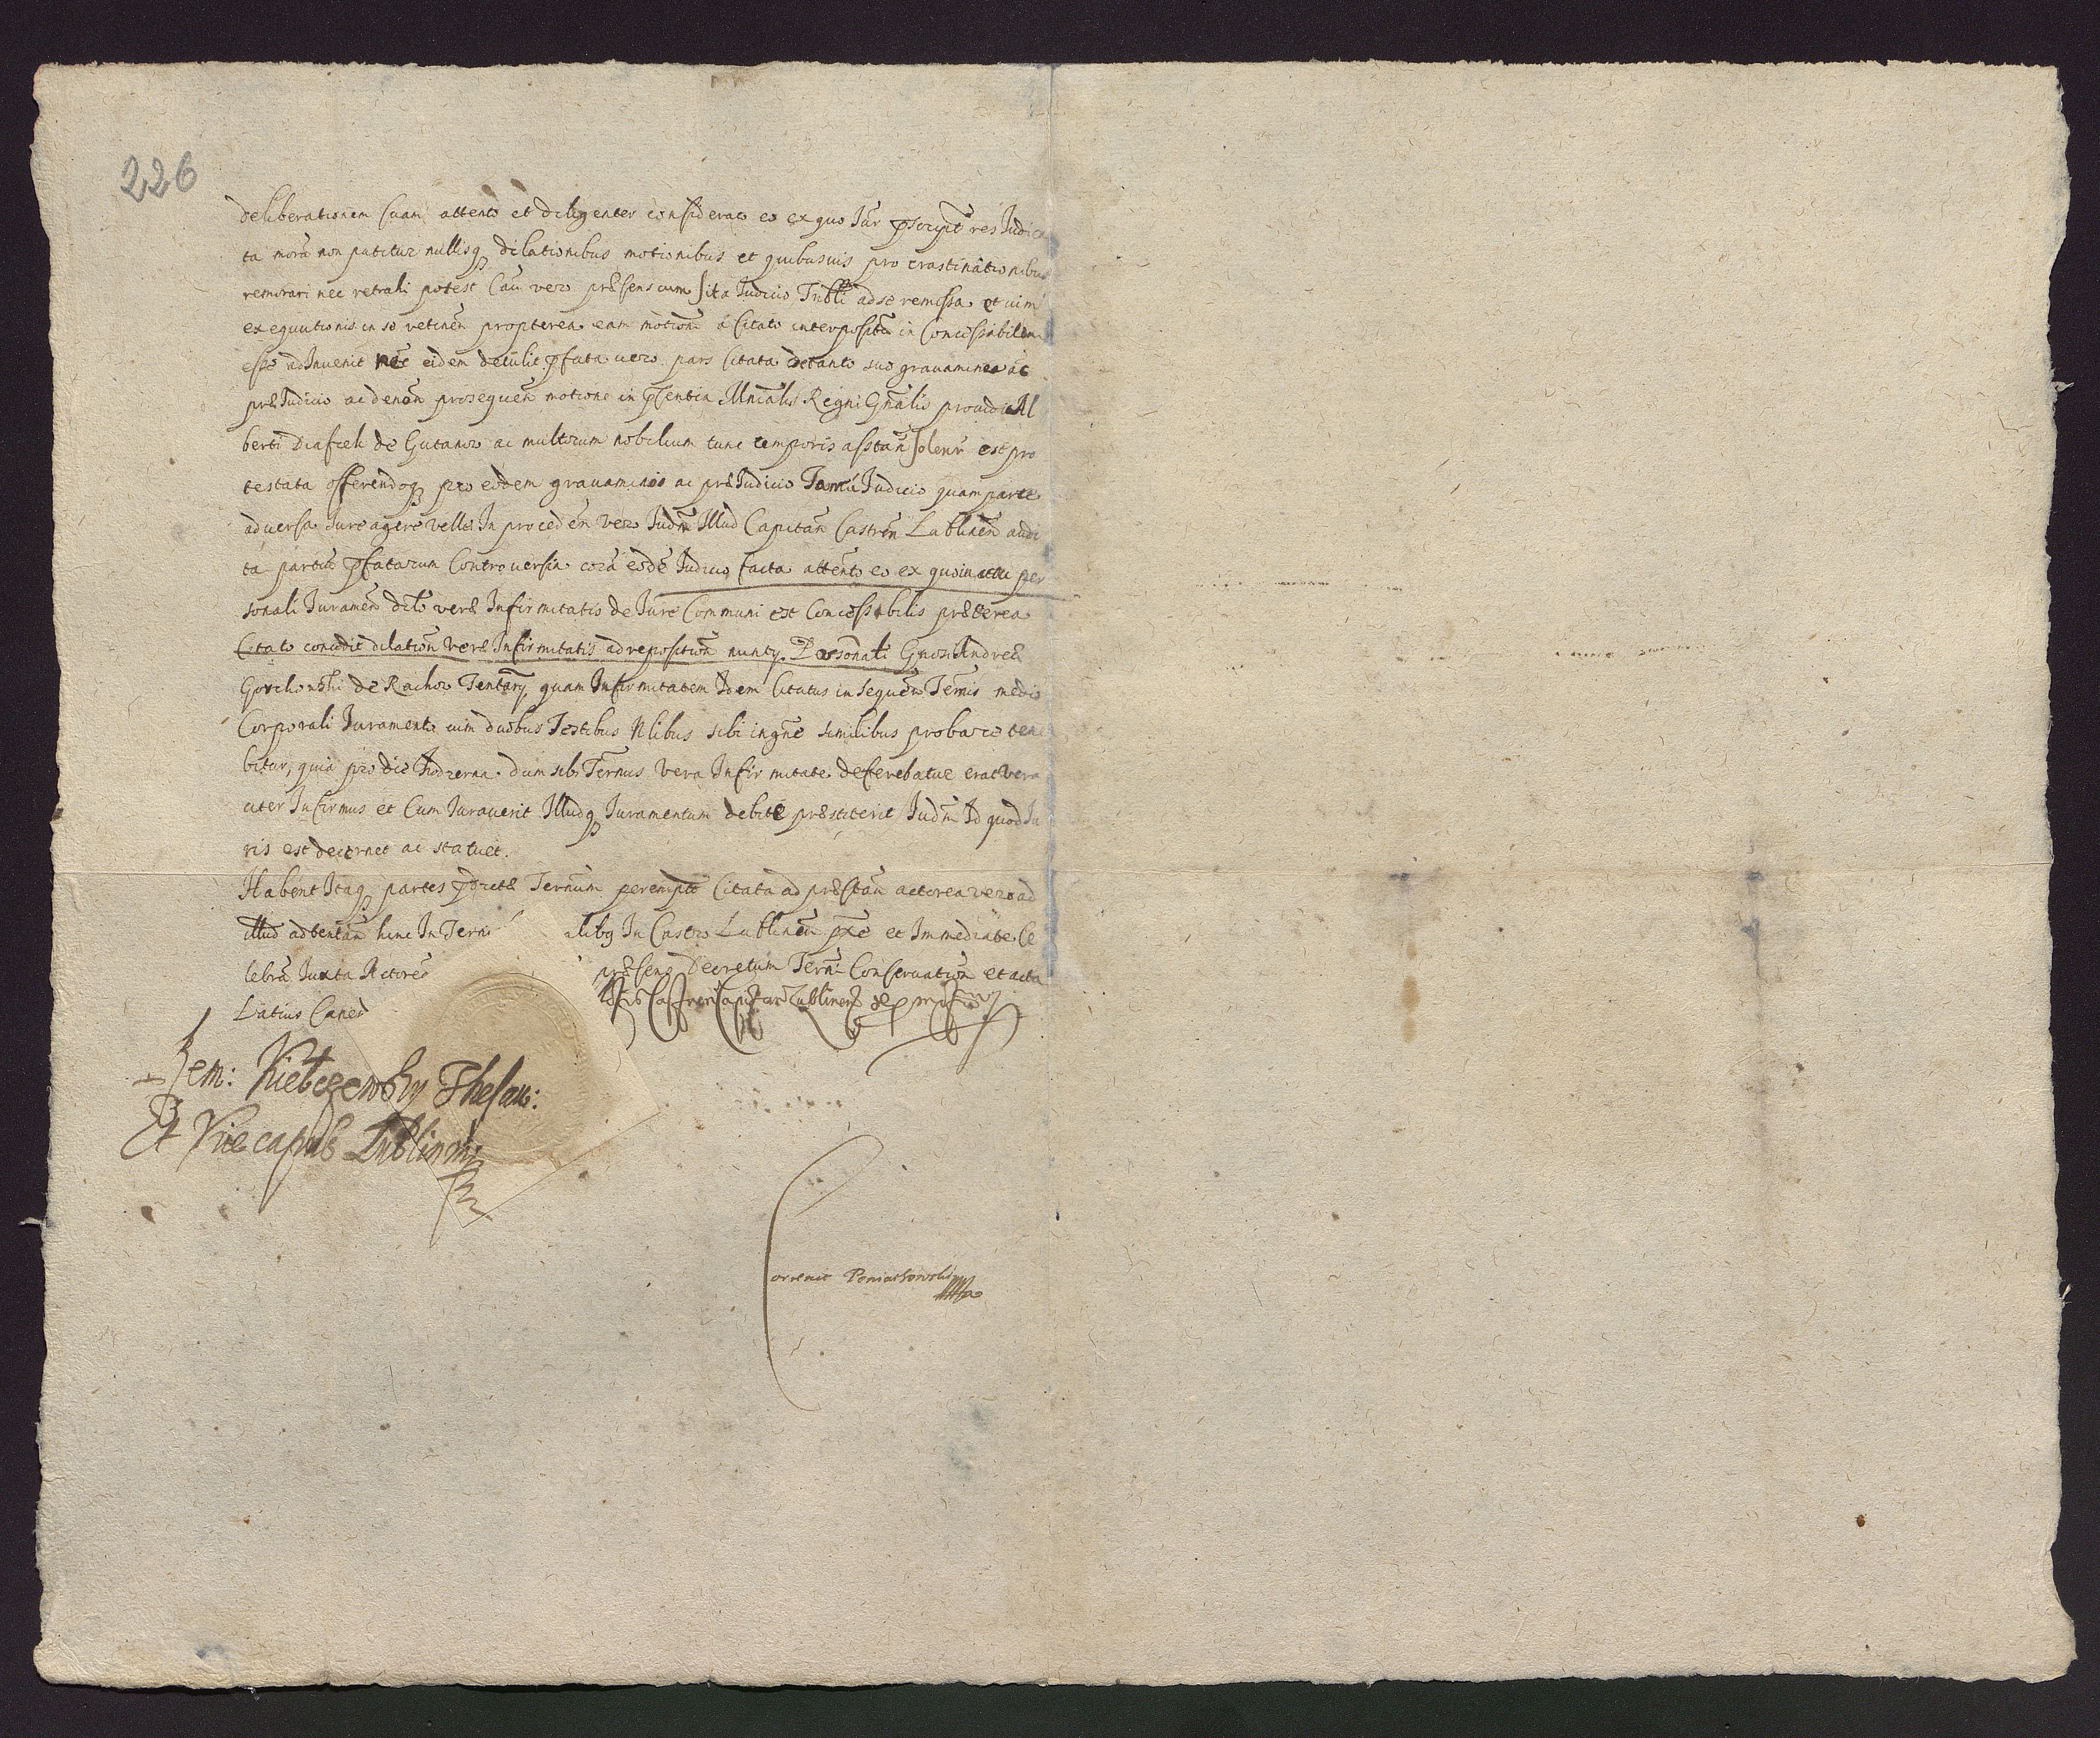 226
deliberationem suam attento et diligenter considerato eo ex quo Iur pscript res Iudica
ta morã non patitur nullisq dilationibus motionibus et quibusuis pro crastinationibus
remorari nec retrahi potest Cau vero præsens cum sit a Iudicio Tribli ad se remissa et uim
exequutionis in se retineñ propterea eam motionẽ a Citato interpositã in Concessibilem
esse adInuenit nec eidem detulit pfata uero pars Citata de tanto suo grauamine ac
præIudicio ac de non prosequeñ motione in pñtia Mnĩalis Regni Gñalis prouidi Al
berti Diafieł de Gutanow ac multorum nobilium tunc temporis asstañ solenr est pro
testata offerendoq pro eodem grauaminis ac præIudicio Tam cũ Iudicio quam parte
aduersa Iure agere velle. In procedeñ vero Iudm Illud Capitañ Castreñ Lublineñ audi
ta partiũ pfatarum Controuersia corã eodẽ Iudicio facta attento eo ex quo in actu per
sonali Iurameñ dilõ veræ Infirmitatis de Iure Communi est Concessibilis præterea
Citato concedit dilationẽ veræ Infirmitatis ad repositionẽ nunty. Personali Gnosi Andreæ
de Rachow Tentary, quam Infirmitatem Idem Citatus in sequeñ Termis medio
Corporali Iuramento cum duobus Testibus Nlibus sibi in gñe similibus probare tene
bitur, quia pro die hodierna dum sibi Ternus vera Infirmitate deferebatur erat vera
citer Infirmus et Cum Iurauerit Illudq Iuramentum debitè præstiterit Iudm Id quod Iu
ris est decernet ac statuet.
Habent Itaq partes pdictæ Ternum perempto Citata ad præstañ actorea vero ad
illud adtentañ hinc In Tern alibg In Castro Lublineñ pxe et Immediate Ce
lebrã Iuxta Actore præsens decretum Terni Conseruationẽ et acta
Latius Caned
Zem: Kiełczewsky Thesau:
Et Vicecapnūs Lublinñ
Correxit Poniatowski